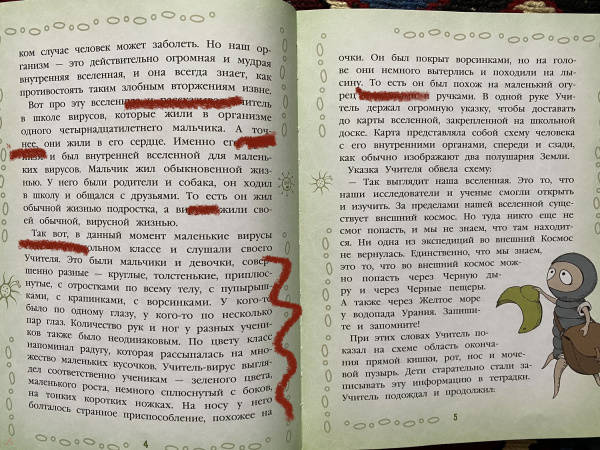 ком случае человек может заболеть. Но наш ор-
ганизм — это действительно огромная и мудрая
внутренняя вселенная, и она всегда знает, как
противостоять таким злобным вторжениям извне.
Вот про эту
в школе вирусов, которые жили в организме
одного четырнадцатилетнего мальчика. А точ-
нее, они жили в его сердце. Именно
и был внутренней вселенной для малень-
ких вирусов. Мальчик жил обыкновенной жиз-
нью. У него были родители и собака, он ходил
в школу и общался с друзьями. То есть он жил
обычной жизнью подростка, а жили сво-
ей обычной, вирусной жизнью.
Так вот, в данный момент маленькие вирусы
классе и слушали своего
Учителя. Это были мальчики и девочки, совер-
шенно разные — круглые, толстенькие, приплюс-
нутые, с отростками по всему телу, с пупырыш-
ками, с крапинками, с ворсинками. У кого-то
было по одному глазу, у кого-то по несколько
пар глаз. Количество рук и ног у разных учени-
ков также было неодинаковым. По цвету класс
напоминал радугу, которая рассыпалась на мно-
жество маленьких кусочков. Учитель-вирус выгля-
дел соответственно ученикам — зеленого цвета,
маленького роста, немного сплюснутый с боков,
на тонких коротких ножках. На носу у него
болталось странное приспособление, похожее на
4
очки. Он был покрыт ворсинками, но на голо-
ве они немного вытерлись и походили на лы-
сину. То есть он был похож на маленький огу-
ручками. В одной руке Учи-
тель держал огромную указку, чтобы доставать
до карты вселенной, закрепленной на школьной
доске. Карта представляла собой схему человека
с его внутренними органами, спереди и сзади,
как обычно изображают два полушария Земли.
Указка Учителя обвела схему:
— Так выглядит наша вселенная. Это то, что
наши исследователи и ученые смогли открыть
и изучить. За пределами нашей вселенной суще-
ствует внешний космос. Но туда никто еще не
смог попасть, и мы не знаем, что там находит-
ся. Ни одна из экспедиций во внешний Космос
не вернулась. Единственно, что мы знаем,
это то, что во внешний космос мож-
но попасть через Черную ды-
ру и через Черные пещеры.
А также через Желтое море
у водопада Урания. Запиши-
те и запомните!
При этих словах Учитель по-
казал на схеме область оконча-
ния прямой кишки, рот, нос и моче-
вой пузырь. Дети старательно стали за-
писывать эту информацию в тетрадки.
Учитель подождал и продолжил:
5